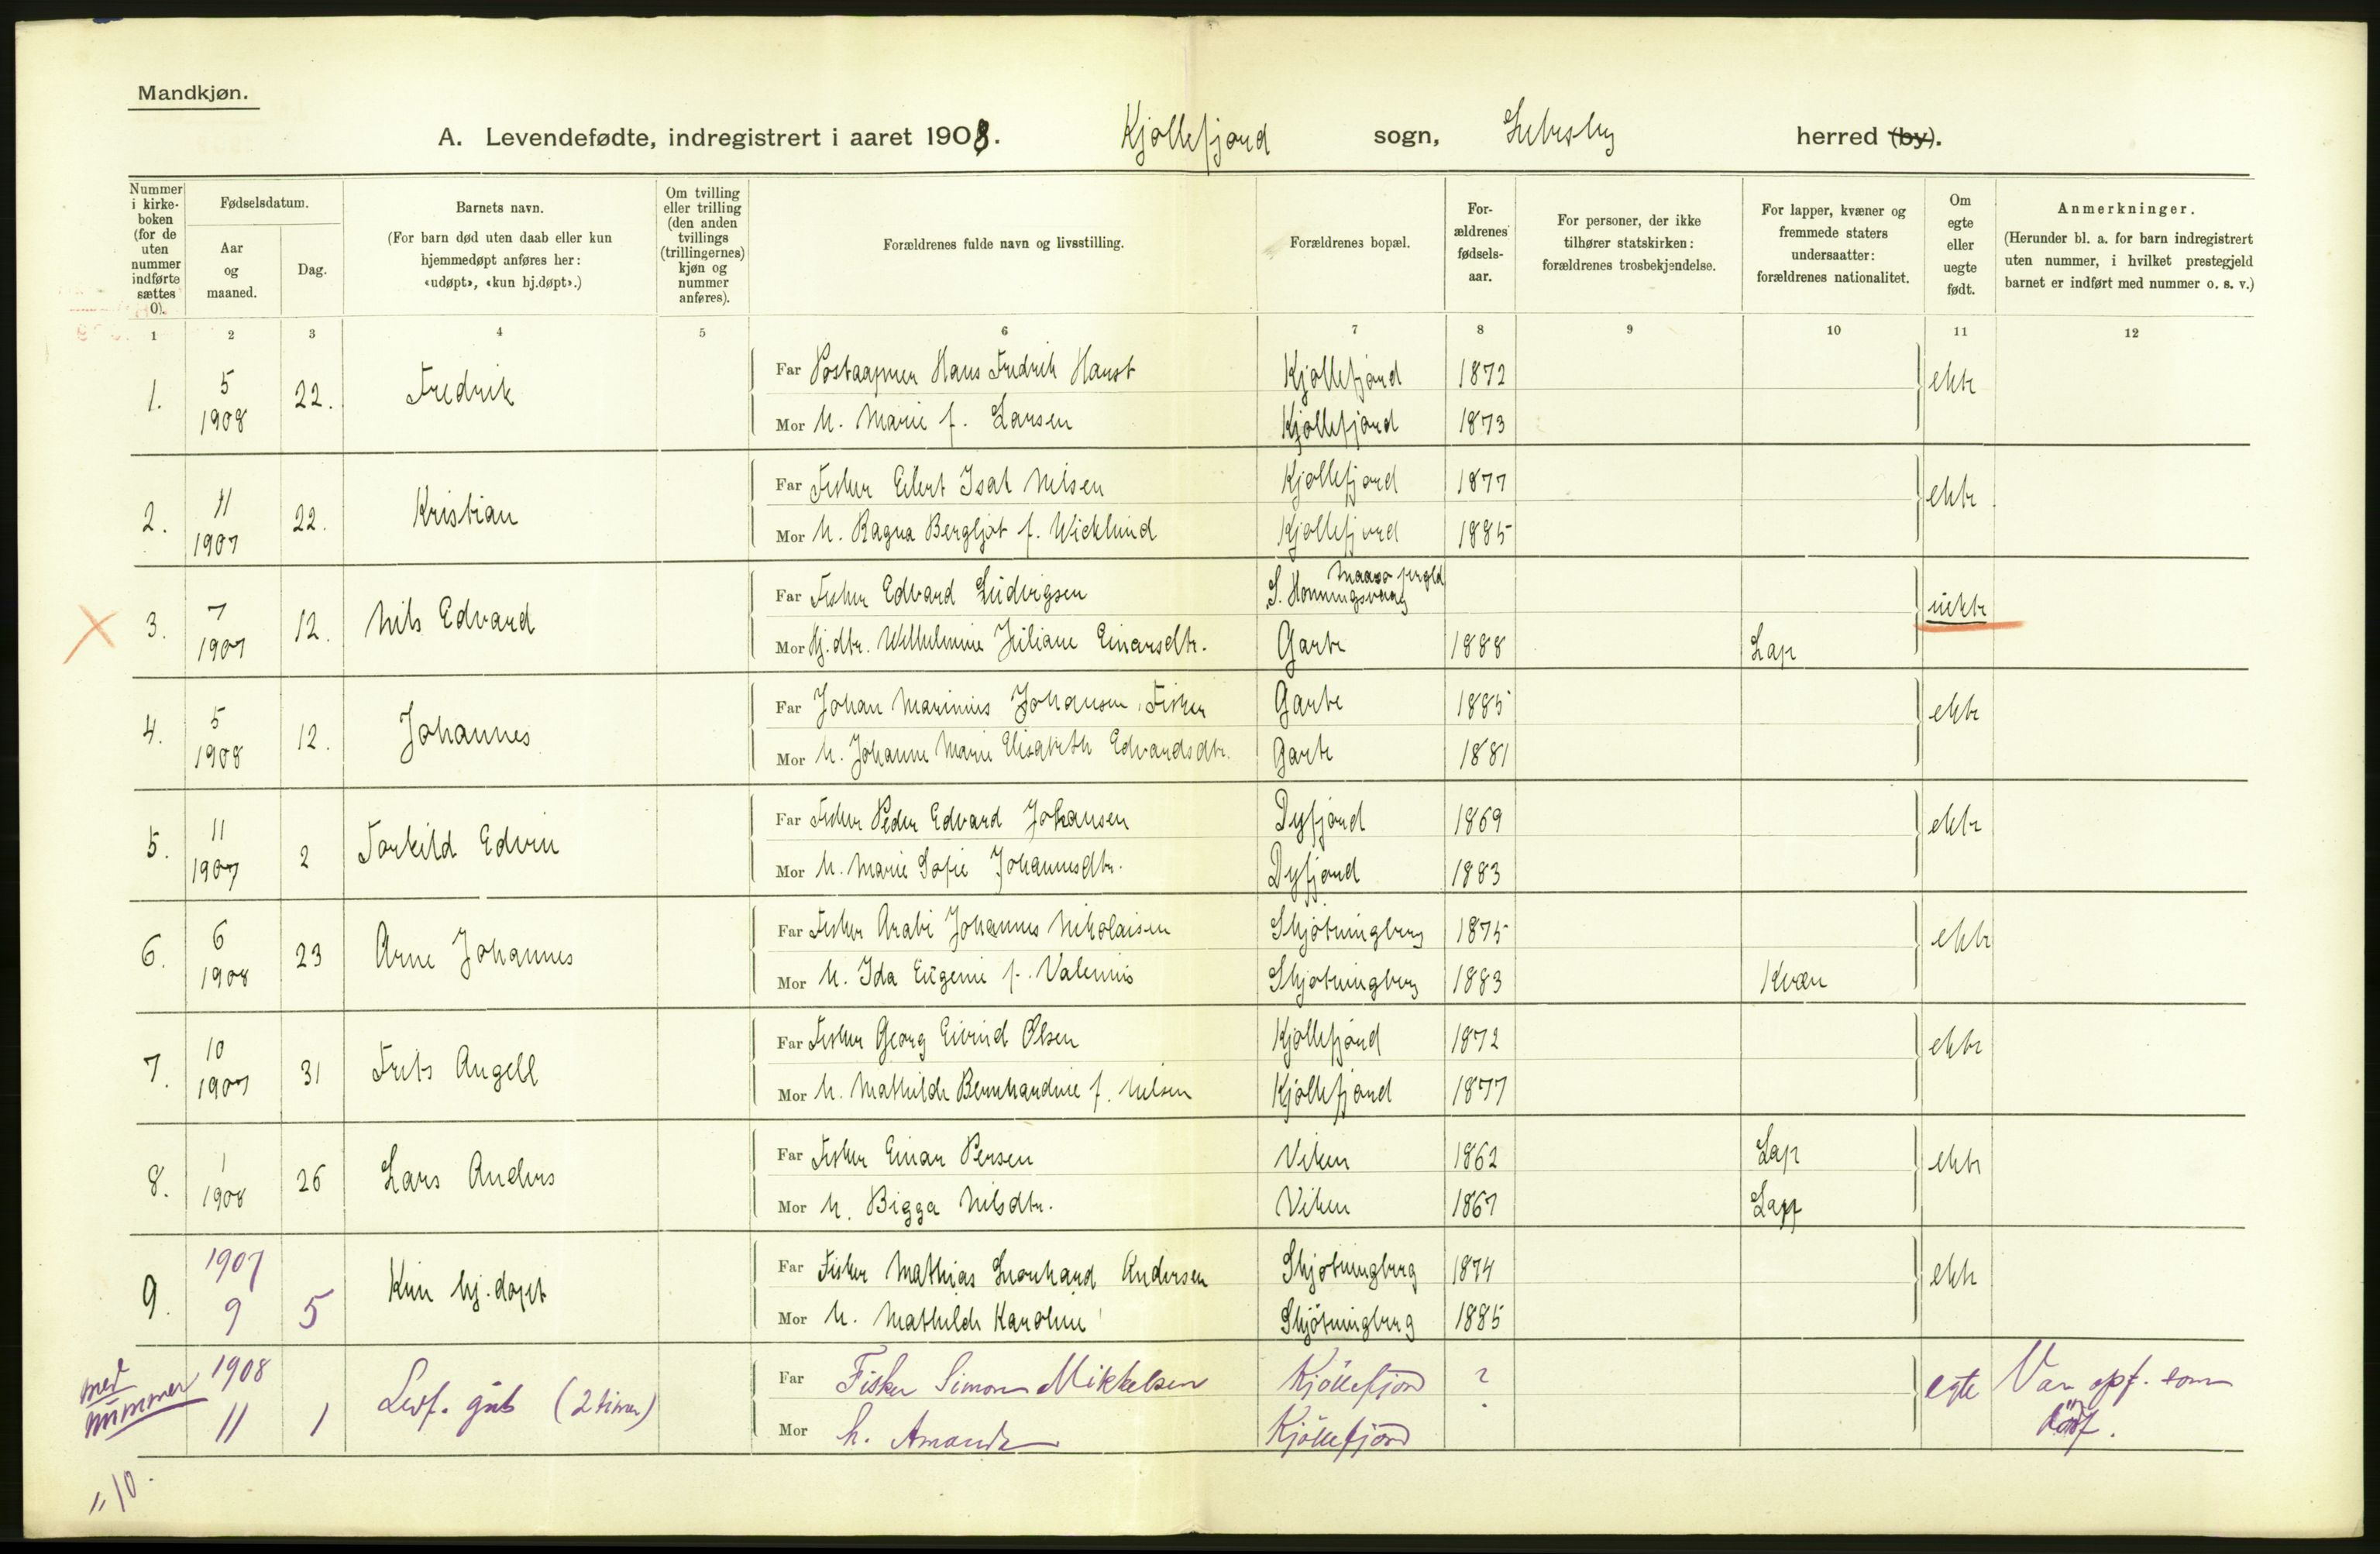 Mandkjøn.
A. Levendefødte, indregistrert i aaret 1908. Kjøllefjord sogn, Lebesby herred (by).
Nummer i kirke-boken (for de uten nummer indførte sættes 0).
Fødselsdatum.
Aar og maaned.
Dag.
Barnets navn.
(For barn død uten daab eller kun hjemmedøpt anføres her: «udøpt», «kun hj.døpt».)
Om tvilling eller trilling (den anden tvillings (trillingernes) kjøn og nummer anføres).
Forældrenes fulde navn og livsstilling.
Forældrenes bopæl.
For-ældrenes fødsels-aar.
For personer, der ikke tilhører statskirken: forældrenes trosbekjendelse.
For lapper, kvæner og fremmede staters undersaatter: forældrenes nationalitet.
Om egte eller uegte født.
Anmerkninger.
(Herunder bl. a. for barn indregistrert uten nummer, i hvilket prestegjeld barnet er indført med nummer o. s. v.)
1 2 3 4 5 6 7 8 9 10 11 12
1. 5 1908 22. Fredrik
Far Postaapner Hans Fredrik Hanst Kjøllefjord 1872 ekte
Mor h. Marie f. Larsen Kjøllefjord 1873
2. 11 1907 22. Kristian
Far Fisker Eilert Isak Nilsen Kjøllefjord 1877 ekte
Mor h. Ragna Bergljot f. Wicklund Kjøllefjord 1885
3. 7 1907 12. Nils Edvard
Far Fisker Edvard Ludvigsen S. Honningsvaag Maasø prgld uekte
Mor Pj. dtr. Wilhelmine Juliane Einarsdtr. Garte 1888 Lap
4. 5 1908 12. Johannes
Far Johan Marinius Johansen, Fisker Garte 1885 ekte
Mor h. Johanne Marie Elisabeth Edvardsdtr. Garte 1881
5. 11 1907 2 Torkild Edvin
Far Fisker Peder Edvard Johansen Dyfjord 1869 ekte
Mor h. Marie Sofie Johannesdtr. Dyfjord 1883
6. 6 1908 23 Arne Johannes
Far Fisker Arabi Johannes Nikolaisen Skjøtningberg 1875 ekte
Mor h. Ida Eugenie f. Valenius Skjøtningberg 1883 Kvæn
7. 10 1907 31 Frits Angell
Far Fisker Georg Eivind Olsen Kjøllefjord 1872 ekte
Mor h. Mathilde Bernhardine f. Nilsen Kjøllefjord 1877
8. 1 1908 26 Lars Anders
Far Fisker Einar Persen Viken 1862 Lap ekte
Mor h. Bigga Nilsdtr. Viken 1867 Lap
9. 1907 9 5 Kun hj. døpt
Far Fisker Mathias Leonhard Andersen Skjøtningberg 1874 ekte
Mor h. Mathilde Karoline Skjøtningberg 1885
med nummer 1908 11 1 Levf. gut (2 timer)
Far Fisker Simon Mikkelsen Kjøllefjord ? egte Var opf. som
Mor h. Amanda Kjøllefjord dødf.
" 10.